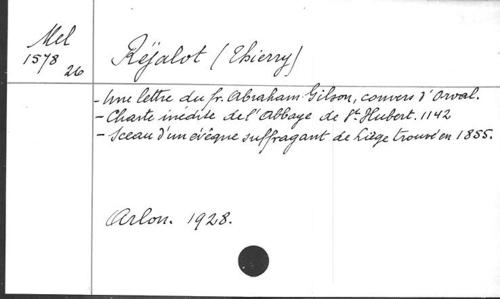 Mel
1578
26
Réjalot (Thierry)
- Une lettre du fr. Abraham Gilson, convers d'Orval.
- Charte inédite de l'Abbaye de St. Hubert. 1142
- Sceau d'un évêque suffragant de Liège trouvé en 1855.
Arlon. 1928.